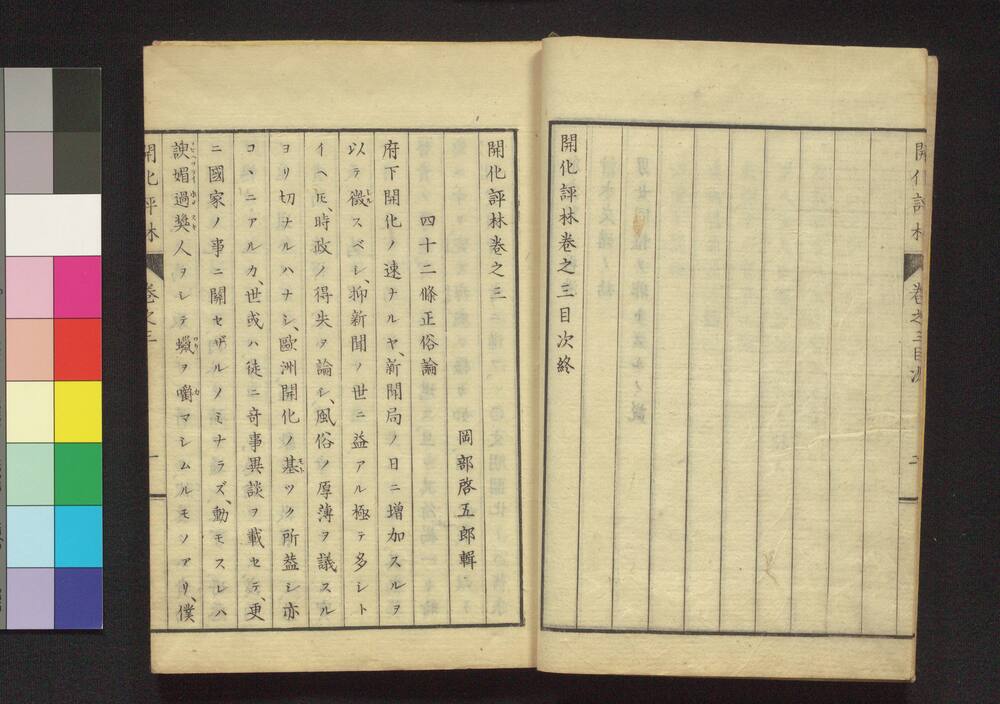 開化評林 卷之三目次 二
開化評林卷之三目次終
開化評林卷之三
岡部啓五郎輯
四十二條正俗論
府下開化ノ速ナルヤ、新聞局ノ日ニ增加スルヲ
以テ徴スベシ、抑新聞ノ世ニ益アル極テ多シト
イヘ𪜈、時政ノ得失ヲ論シ、風俗ノ厚薄ヲ議スル
ヨリ切ナルハナシ、歐洲開化ノ基ツク所蓋シ亦
コヽニアルカ、世或ハ徒ニ奇事異談ヲ載セテ、更
ニ國家ノ事ニ關セザルノミナラズ、動モスレハ
諛媚過奬人ヲシテ蠟ヲ嚼マシムルモノアリ、僕
開化評林 卷之三 一